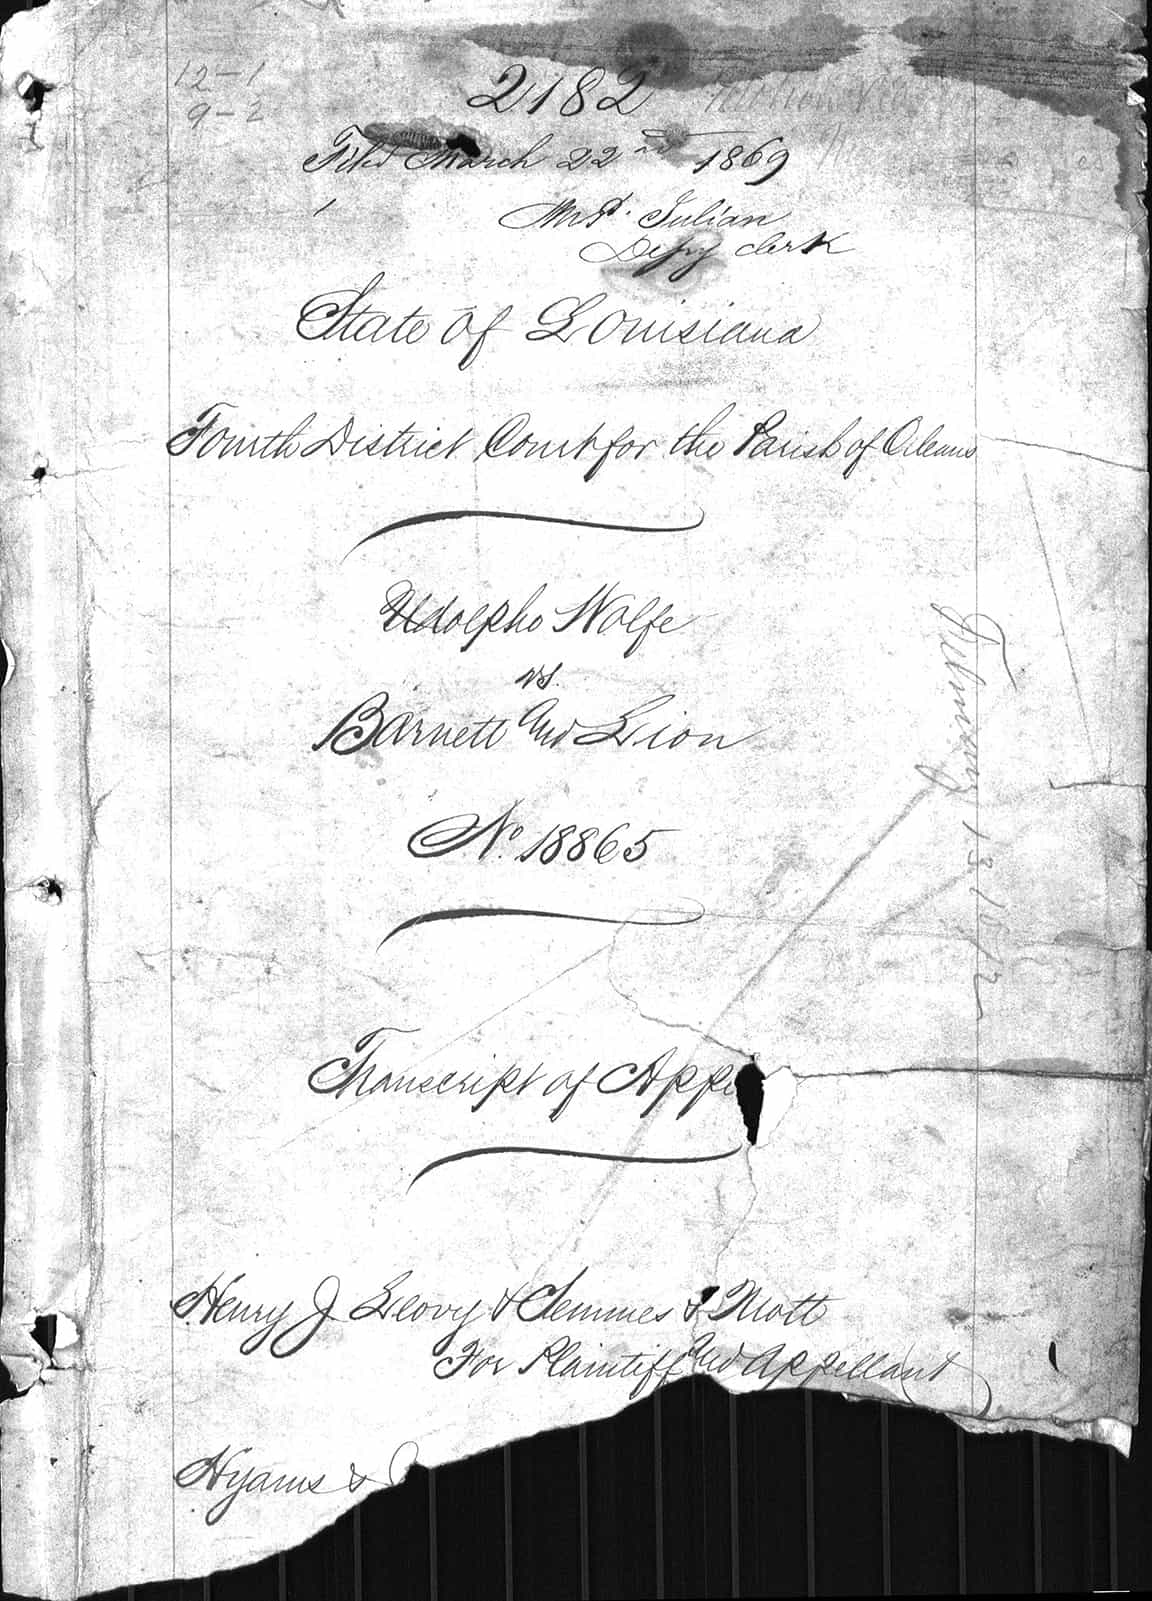 12-1
9-2
2182
Filed March 22nd 1869
Julian
Depy clerk
State of Louisiana
Fourth District Court for the Parish of Orleans
Udolpho Wolfe
vs.
Barnett and Lion
No. 18865
Transcript of Appe
Henry J Leovy & Semmes & Mott
For Plaintiff and Appellant
Hyams &